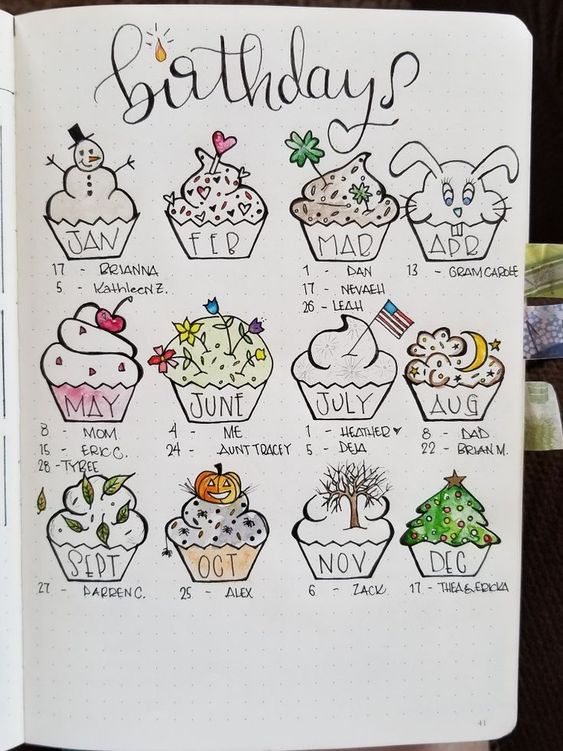 birthdays
JAN
FEB
MAR
APR
17 - BRIANNA
5 - Kathleen Z.
1 - DAN
17 - NEVAEH
26 - LEAH
13 - GRAM CAROLE
MAY
JUNE
JULY
AUG
8 - MOM
15 - ERIC C.
28 - TYBEE
4 - ME
24 - AUNT TRACEY
1 - HEATHER ♥
5 - DEJA
8 - DAD
22 - BRIAN M.
SEPT
OCT
NOV
DEC
27 - DARREN C.
25 - ALEX
6 - ZACK
17 - THEA & ERICKA
41